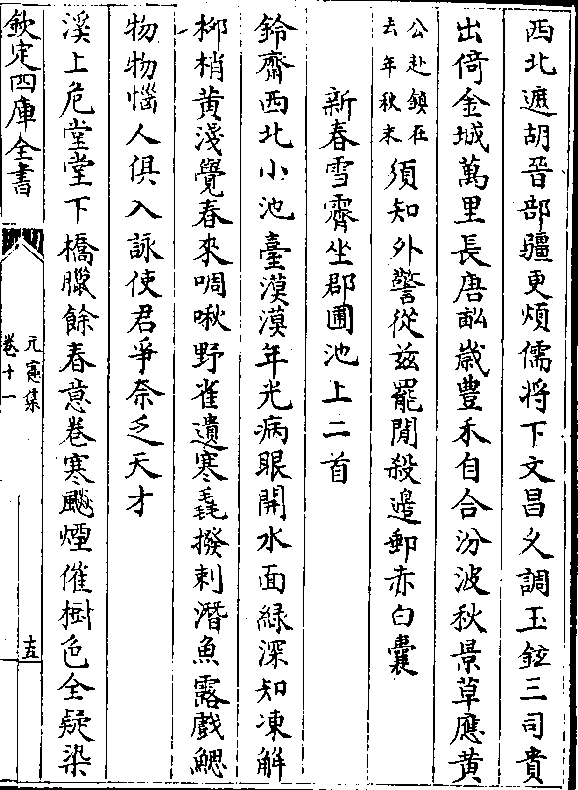 西北遮胡晉部疆更煩儒將下文昌久調玉鉉三司貴
出倚金城萬里長唐畝嵗豐禾自合汾波秋景草應黄
公赴鎮在
去年秋末
須知外警從兹罷閒殺邉郵赤白囊
新春雪霽坐郡圃池上二首
鈴齋西北小池臺漠漠年光病眼開水面緑深知凍解
栁梢黄淺覺春來啁啾野雀遺寒毳撥剌潛魚露戲鰓
物物惱人俱入詠使君爭奈乏天才
溪上危堂堂下橋臘餘春意卷寒飈煙催樹色全疑染
欽定四庫全書
元憲集
卷十一
十五